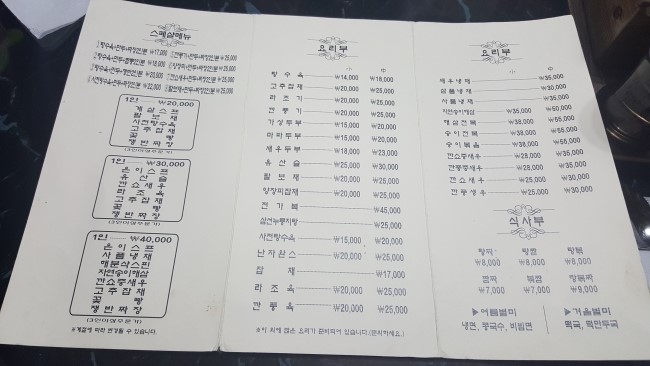 스페샬메뉴
탕수육+만두+짜장2인분 ₩17,000
₩25,000
₩18,000
₩25,000
₩20,000
₩25,000
₩22,000
₩25,000
1인 ₩20,000
게살스프
팔보채
사천탕수육
고추잡채
꽃빵
쟁반짜장
(3인이상주문가)
1인 ₩30,000
은이스프
유산슬
깐쇼새우
라조육
고추잡채
꽃빵
쟁반짜장
1인 ₩40,000
은이스프
사품냉채
해분삭스핀
자연송이해삼
깐쇼중새우
고추잡채
꽃빵
쟁반짜장
(3인이상주문가)
※계절에 따라 변경될 수 있습니다.
요리부
小 中
탕수육 ₩14,000 ₩18,000
고추잡채 ₩20,000 ₩25,000
라조기 ₩20,000 ₩25,000
깐풍기 ₩20,000 ₩25,000
가상두부 ₩15,000 ₩20,000
마파두부 ₩15,000 ₩20,000
새우두부 ₩18,000 ₩23,000
유산슬 ₩25,000 ₩30,000
팔보채 ₩20,000 ₩25,000
양장피잡채 ₩20,000 ₩25,000
전가복 ₩45,000
삼선누룽지탕 ₩25,000
사천탕수육 ₩15,000 ₩20,000
난자완스 ₩20,000 ₩25,000
잡채 ₩17,000
라조육 ₩20,000 ₩25,000
깐풍육 ₩20,000 ₩25,000
※이 외에 많은 요리가 준비되어 있습니다.(문의하세요.)
요리부
小 中
새우냉채 ₩35,000
삼품냉채 ₩30,000
사품냉채 ₩35,000
자연송이해삼 ₩35,000 ₩50,000
해삼전복 ₩38,000 ₩55,000
송이전복 ₩38,000 ₩55,000
송이볶음 ₩38,000 ₩55,000
깐쇼중새우 ₩28,000 ₩35,000
깐풍중새우 ₩28,000 ₩35,000
깐쇼새우 ₩25,000 ₩30,000
깐풍새우 ₩25,000 ₩30,000
식사부
탕짜 탕짬 탕볶
₩8,000 ₩8,000 ₩8,000
짬짜 볶짬 탕볶짜
₩7,000 ₩7,000 ₩9,000
▶여름별미 ▶겨울별미
냉면, 콩국수, 비빔면 떡국, 떡만두국